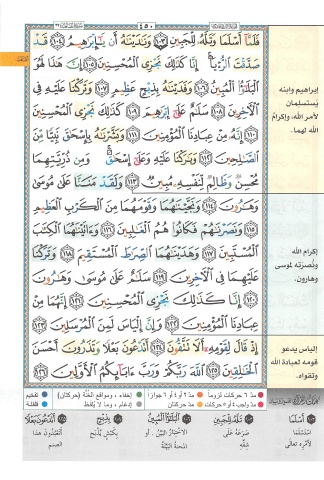 ٤٥٠
فَلَمَّآ أَسْلَمَا وَتَلَّهُۥ لِلْجَبِينِ ١٠٣ وَنَٰدَيْنَٰهُ أَن يَٰٓإِبْرَٰهِيمُ ١٠٤ قَدْ
صَدَّقْتَ ٱلرُّءْيَآ إِنَّا كَذَٰلِكَ نَجْزِى ٱلْمُحْسِنِينَ ١٠٥ إِنَّ هَٰذَا لَهُوَ
ٱلْبَلَٰٓؤُا۟ ٱلْمُبِينُ ١٠٦ وَفَدَيْنَٰهُ بِذِبْحٍ عَظِيمٍ ١٠٧ وَتَرَكْنَا عَلَيْهِ فِى
ٱلْءَاخِرِينَ ١٠٨ سَلَٰمٌ عَلَىٰٓ إِبْرَٰهِيمَ ١٠٩ كَذَٰلِكَ نَجْزِى ٱلْمُحْسِنِينَ
١١٠ إِنَّهُۥ مِنْ عِبَادِنَا ٱلْمُؤْمِنِينَ ١١١ وَبَشَّرْنَٰهُ بِإِسْحَٰقَ نَبِيًّا مِّنَ
ٱلصَّٰلِحِينَ ١١٢ وَبَٰرَكْنَا عَلَيْهِ وَعَلَىٰٓ إِسْحَٰقَ وَمِن ذُرِّيَّتِهِمَا
مُحْسِنٌ وَظَالِمٌ لِّنَفْسِهِۦ مُبِينٌ ١١٣ وَلَقَدْ مَنَنَّا عَلَىٰ مُوسَىٰ
وَهَٰرُونَ ١١٤ وَنَجَّيْنَٰهُمَا وَقَوْمَهُمَا مِنَ ٱلْكَرْبِ ٱلْعَظِيمِ
١١٥ وَنَصَرْنَٰهُمْ فَكَانُوا۟ هُمُ ٱلْغَٰلِبِينَ ١١٦ وَءَاتَيْنَٰهُمَا ٱلْكِتَٰبَ
ٱلْمُسْتَبِينَ ١١٧ وَهَدَيْنَٰهُمَا ٱلصِّرَٰطَ ٱلْمُسْتَقِيمَ ١١٨ وَتَرَكْنَا
عَلَيْهِمَا فِى ٱلْءَاخِرِينَ ١١٩ سَلَٰمٌ عَلَىٰ مُوسَىٰ وَهَٰرُونَ
١٢٠ إِنَّا كَذَٰلِكَ نَجْزِى ٱلْمُحْسِنِينَ ١٢١ إِنَّهُمَا مِنْ
عِبَادِنَا ٱلْمُؤْمِنِينَ ١٢٢ وَإِنَّ إِلْيَاسَ لَمِنَ ٱلْمُرْسَلِينَ ١٢٣
إِذْ قَالَ لِقَوْمِهِۦٓ أَلَا تَتَّقُونَ ١٢٤ أَتَدْعُونَ بَعْلًا وَتَذَرُونَ أَحْسَنَ
ٱلْخَٰلِقِينَ ١٢٥ ٱللَّهَ رَبَّكُمْ وَرَبَّ ءَابَآئِكُمُ ٱلْأَوَّلِينَ ١٢٦
إبراهيم وابنه
يَستسلمان
لأمر الله، وإكرام
الله لهما.
إكرام الله
ونُصرته لموسى
وهارون.
إلياس يدعو
قومه لعبادة الله
وتقواه.
مدّ ٦ حركات لزوماً
مدّ ٢ أو ٤ أو ٦ جوازاً
إخفاء، ومواقع الغُنَّة (حركتان)
تفخيم
مدّ واجب ٤ أو ٥ حركات
مدّ حركتان
إدغام، وما لا يُلفَظ
قلقلة
أَسْلَمَا
استسلما
لأمره تعالى
تَلَّهُ لِلْجَبِينِ
صرعه على
شقّه
الْبَلَاءُ الْمُبِينُ
الاختبار البيّن. أو
المحنة البيّنة
بِذِبْحٍ
بكبش يُذبح
أَتَدْعُونَ بَعْلًا
أتعبدون هذا
الصنم